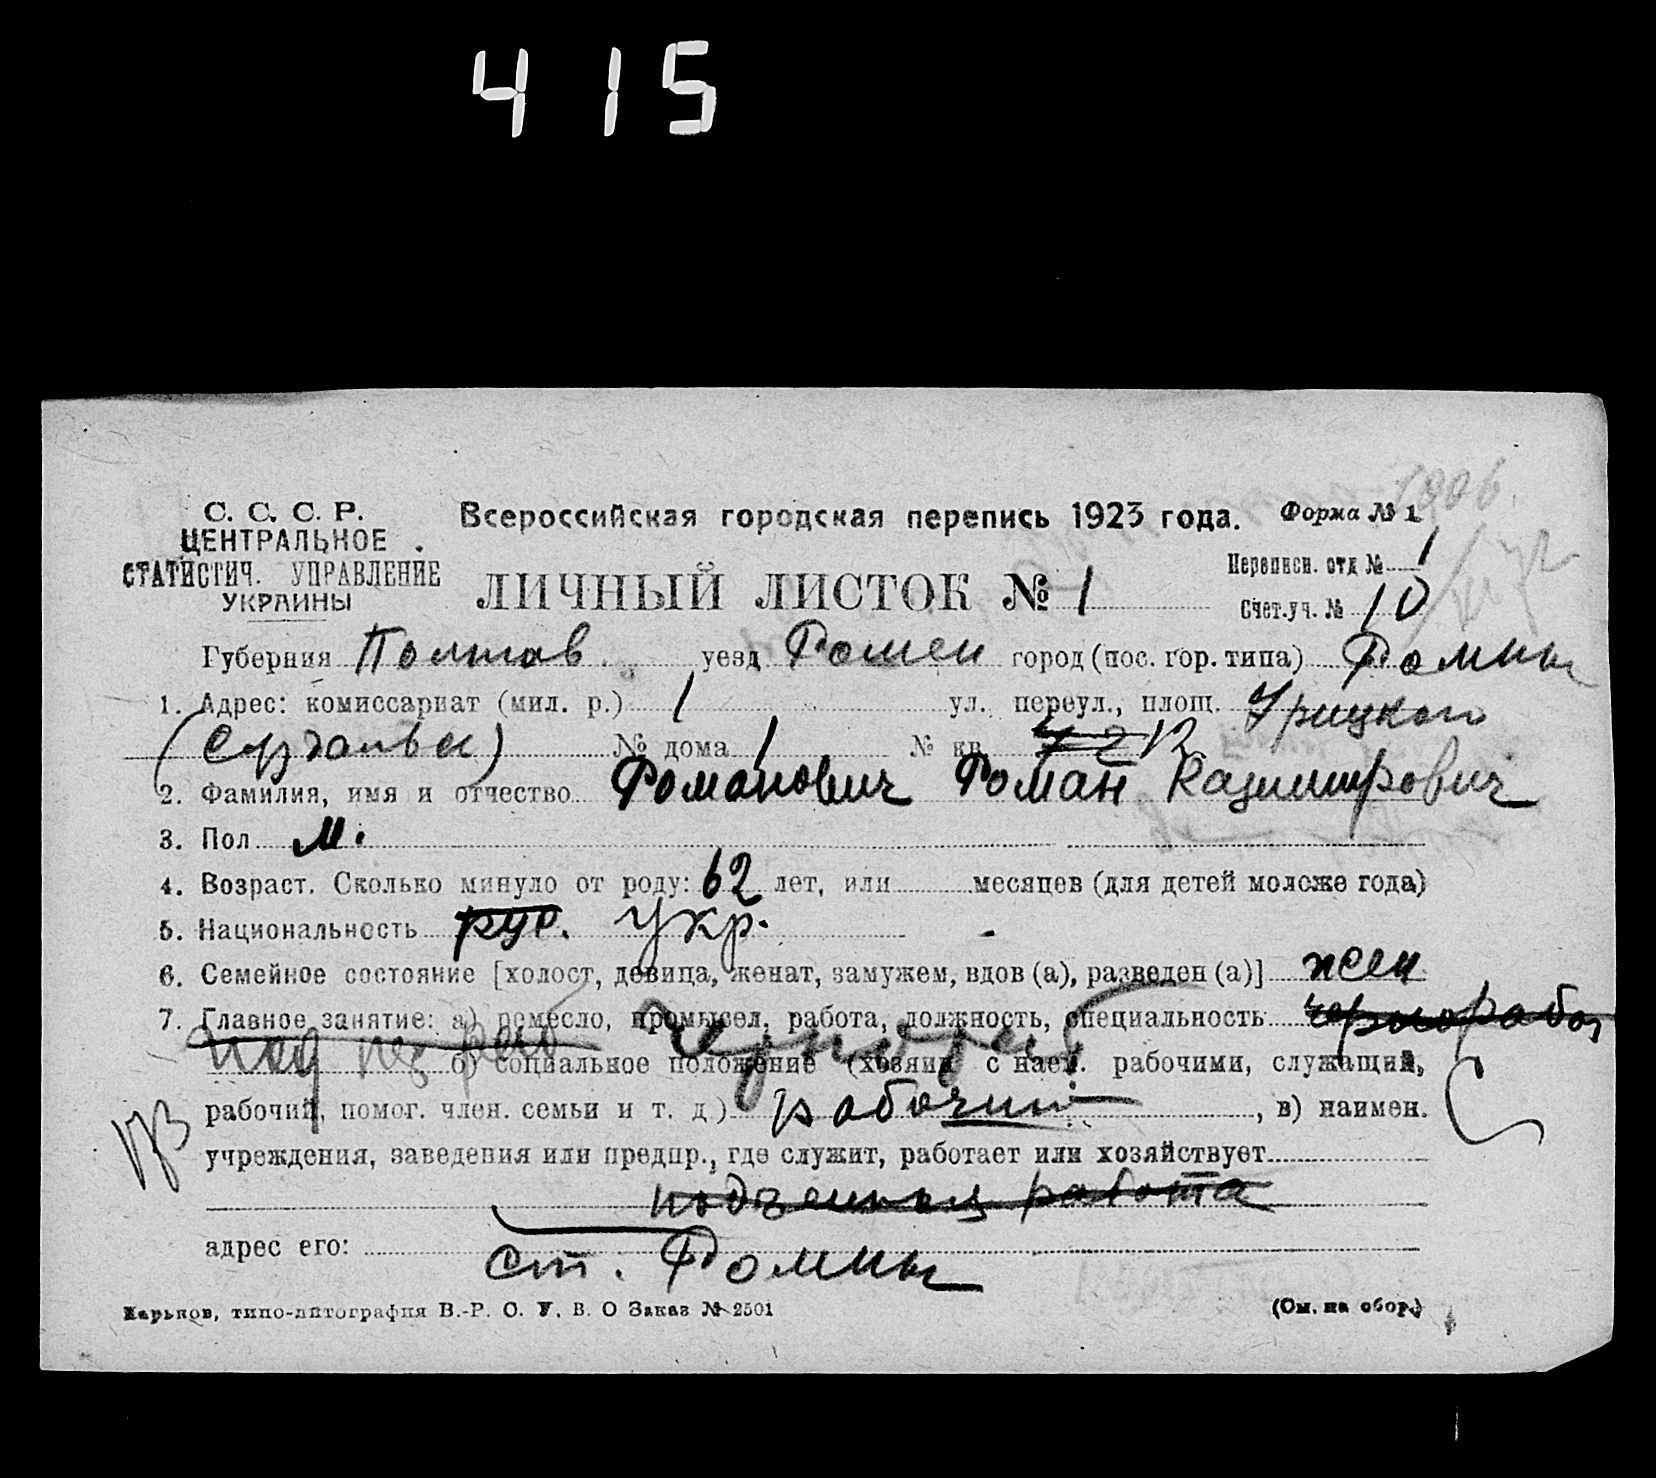 415
С. С. С. Р.
ЦЕНТРАЛЬНОЕ
СТАТИСТИЧ. УПРАВЛЕНИЕ
УКРАИНЫ
Всероссийская городская перепись 1923 года. Форма № 1
ЛИЧНЫЙ ЛИСТОК № 1
Переписн. отд № 1
Счет.уч. № 10
Губерния Полтав. уезд Ромен город (пос. гор. типа) Ромны
1. Адрес: комиссариат (мил. р.) 1 ул. переул., площ. Урицкого
№ дома 1 № кв 12
2. Фамилия, имя и отчество Романович Роман Казимирович
3. Пол м.
4. Возраст. Сколько минуло от роду: 62 лет, или месяцев (для детей моложе года)
5. Национальность рус. укр.
6. Семейное состояние [холост, девица, женат, замужем, вдов (а), разведен (а)] жен
7. Главное занятие: а) ремесло, промысел, работа, должность, специальность чернораб
б) социальное положение (хозяин с наем. рабочими, служащий,
рабочий, помог. член. семьи и т. д.) рабочий, в) наимен.
учреждения, заведения или предпр., где служит, работает или хозяйствует
работа
адрес его: ст. Ромны
Харьков, типо-литография В.-Р. О. У. В. О Заказ № 2501 (См. на обор.)